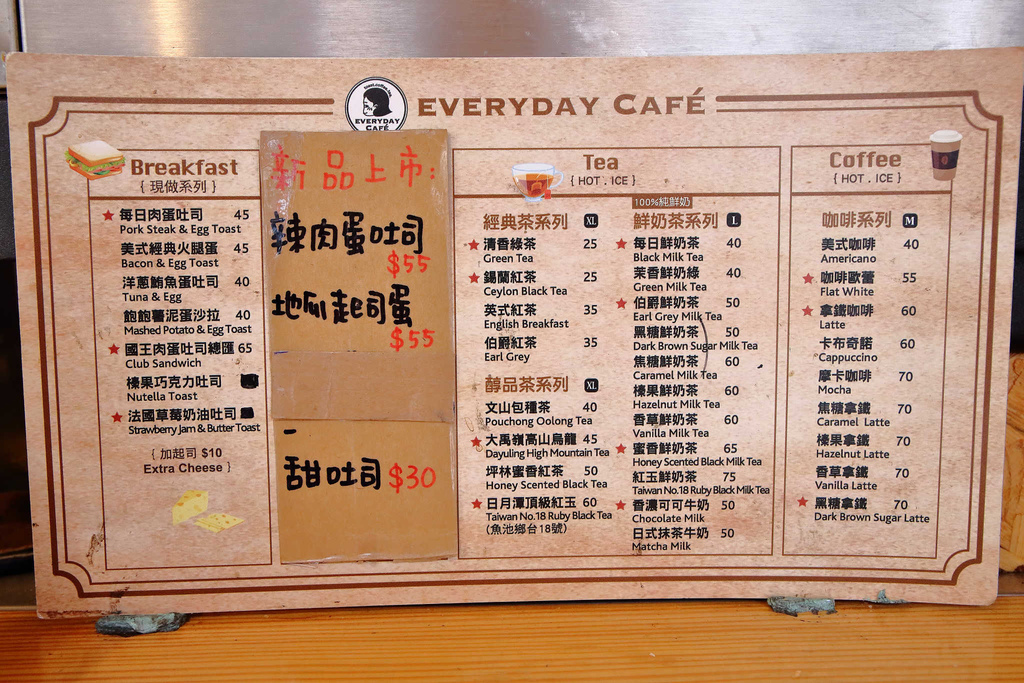 EVERYDAY CAFÉ
EVERYDAY CAFÉ
Breakfast
{ 現做系列 }
每日肉蛋吐司 45
Pork Steak & Egg Toast
美式經典火腿蛋 45
Bacon & Egg Toast
洋蔥鮪魚蛋吐司 40
Tuna & Egg
飽飽薯泥蛋沙拉 40
Mashed Potato & Egg Toast
國王肉蛋吐司總匯 65
Club Sandwich
榛果巧克力吐司
Nutella Toast
法國草莓奶油吐司
Strawberry Jam & Butter Toast
{ 加起司 $10
Extra Cheese }
新品上市:
辣肉蛋吐司
$55
地瓜起司蛋
$55
甜吐司 $30
Tea
{ HOT . ICE }
經典茶系列 XL
清香綠茶 25
Green Tea
錫蘭紅茶 25
Ceylon Black Tea
英式紅茶 35
English Breakfast
伯爵紅茶 35
Earl Grey
醇品茶系列 XL
文山包種茶 40
Pouchong Oolong Tea
大禹嶺高山烏龍 45
Dayuling High Mountain Tea
坪林蜜香紅茶 50
Honey Scented Black Tea
日月潭頂級紅玉 60
Taiwan No.18 Ruby Black Tea
(魚池鄉台18號)
100%純鮮奶
鮮奶茶系列 L
每日鮮奶茶 40
Black Milk Tea
茉香鮮奶綠 40
Green Milk Tea
伯爵鮮奶茶 50
Earl Grey Milk Tea
黑糖鮮奶茶 50
Dark Brown Sugar Milk Tea
焦糖鮮奶茶 60
Caramel Milk Tea
榛果鮮奶茶 60
Hazelnut Milk Tea
香草鮮奶茶 60
Vanilla Milk Tea
蜜香鮮奶茶 65
Honey Scented Black Milk Tea
紅玉鮮奶茶 75
Taiwan No.18 Ruby Black Milk Tea
香濃可可牛奶 50
Chocolate Milk
日式抹茶牛奶 50
Matcha Milk
Coffee
{ HOT . ICE }
咖啡系列 M
美式咖啡 40
Americano
咖啡歐蕾 55
Flat White
拿鐵咖啡 60
Latte
卡布奇諾 60
Cappuccino
摩卡咖啡 70
Mocha
焦糖拿鐵 70
Caramel Latte
榛果拿鐵 70
Hazelnut Latte
香草拿鐵 70
Vanilla Latte
黑糖拿鐵 70
Dark Brown Sugar Latte